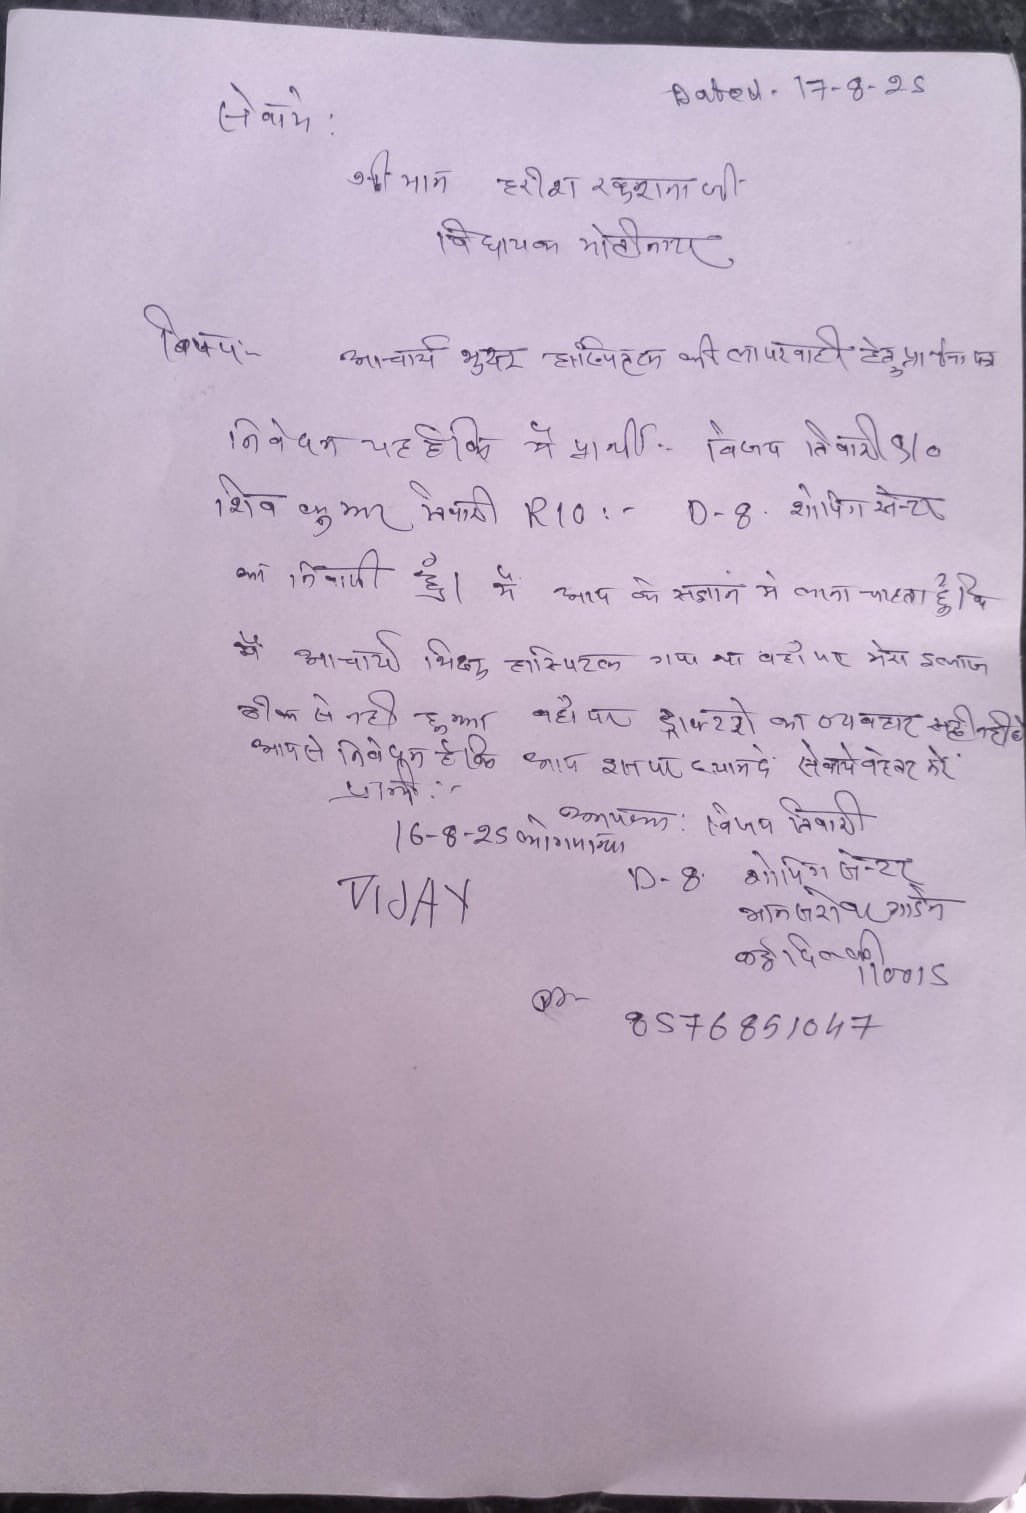 Dated. 17-8-25
सेवामे :
श्री मान हरीश खुराना जी
विधायक मोतीनगर
विषय:- आचार्य हास्पिटल की लापरवाही हेतु प्रार्थना पत्र
निवेदन यह है कि मैं प्रार्थी:- विजय तिवारी S/o
शिव कुमार तिवारी R/O :- D-8. शोपिंग सेन्टर
का निवासी हूँ। मैं आप के संज्ञान मे लाना चाहता हूँ कि
मैं आचार्य भिक्षु हास्पिटल गया था वहाँ पर मेरा इलाज
ठीक से नही हुआ वहाँ पर डाक्टरो का व्यवहार सही नही है
आपसे निवेदन है कि आप इस पर ध्यान दे सेवाये बेहतर करें
प्रार्थी :-
16-8-25 को गया था आपका : विजय तिवारी
VIJAY D-8. शोपिंग सेन्टर
मानसरोवर गार्डन
नई दिल्ली
110015
8576851047